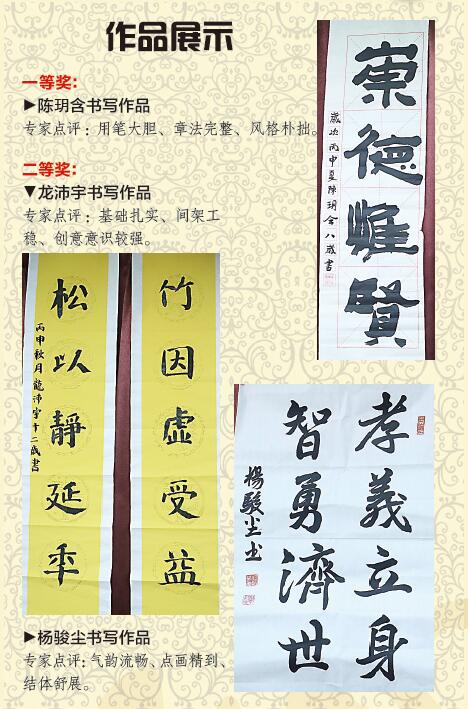 作品展示
一等奖:
▶陈玥含书写作品
专家点评：用笔大胆、章法完整、风格朴拙。
崇德惟賢
歲次丙申夏陳玥含八歲書
二等奖:
▼龙沛宇书写作品
专家点评：基础扎实、间架工
稳、创意意识较强。
竹因虛受益
松以靜延年
丙申秋月龍沛宇十二歲書
孝義立身
智勇濟世
楊駿尘书
▶杨骏尘书写作品
专家点评：气韵流畅、点画精到、
结体舒展。